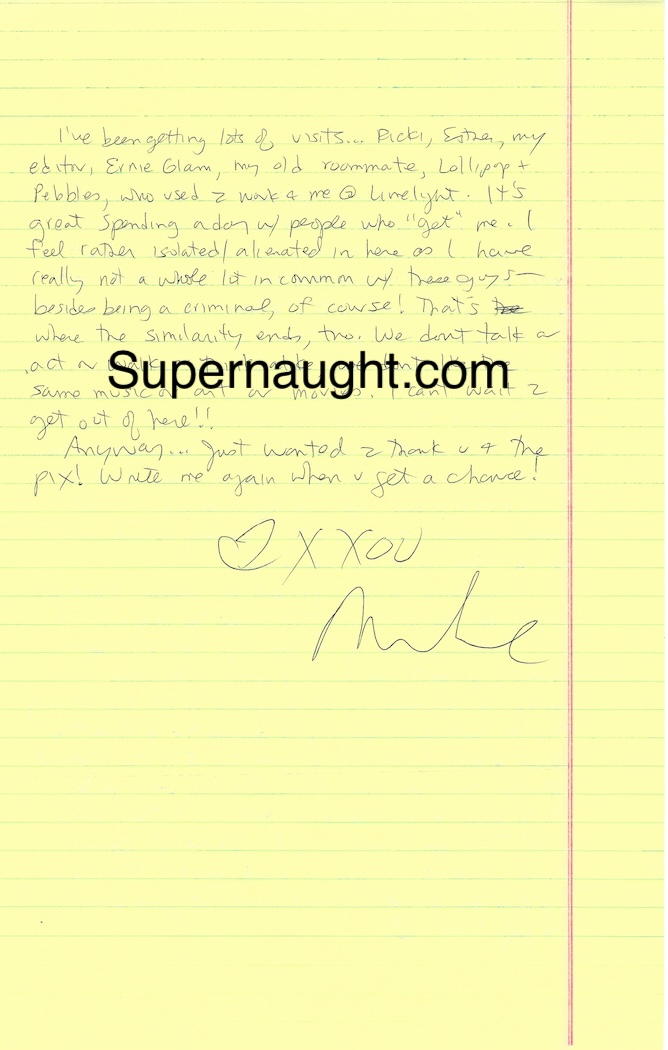 I've been getting lots of visits... Ricki, Esther, my
editor, Ernie Glam, my old roommate, Lollipop +
Pebbles, who used 2 work 4 me @ Limelight. It's
great spending a day w/ people who "get" me. I
feel rather isolated/alienated in here as I have
really not a whole lot in common w/ these guys—
besides being a criminal, of course! That's
where the similarity ends, tho. We dont talk or
act or walk or think alike, we dont like the
Supernaught.com
same music or art or movies. I cant wait 2
get out of here!!
Anyway... Just wanted 2 thank u 4 the
pix! Write me again when u get a chance!
♡ XXOU